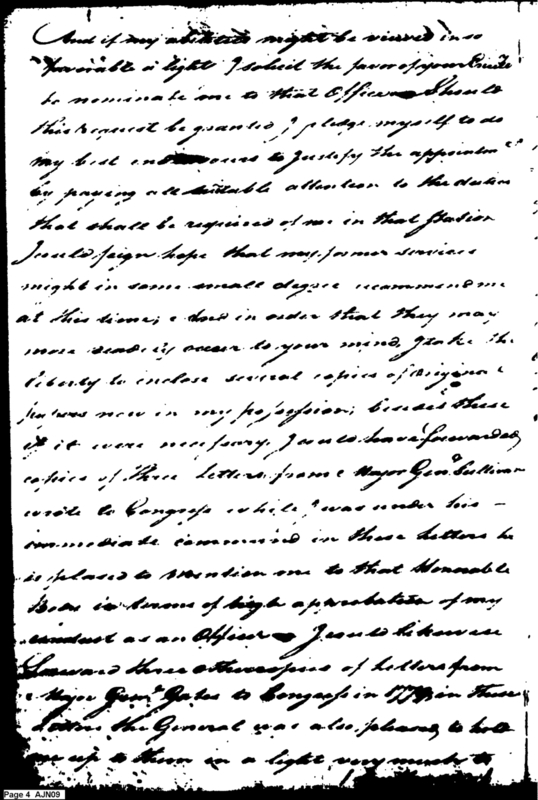 And if my abilities might be viewed in so
favorable a light I solicit the favor of your
to nominate me to that Office Should
this request be granted, I pledge myself to do
my best endeavours to Justify the appointmt
by paying all suitable attention to the duties
that shall be required of me in that Station
I could feign hope that my former services
might in some small degree recommend me
at this time; And in order that they may
more readily occur to your mind, I take the
liberty to inclose several copies of Original
papers now in my possession; besides these
if it were necessary, I could have forwarded
copies of Three Letters from Major Genl Sullivan
wrote to Congress while I was under his –
immediate command in these letters he
is pleased to mention me to that Honorable
Body in terms of high approbation of my
conduct as an Officer I could likewise
forward three other copies of Letters from
Major Genl Gates to Congress in in these
Letters the General was also pleased to hold
me up to them in a light very much to
Page 4 AJN09